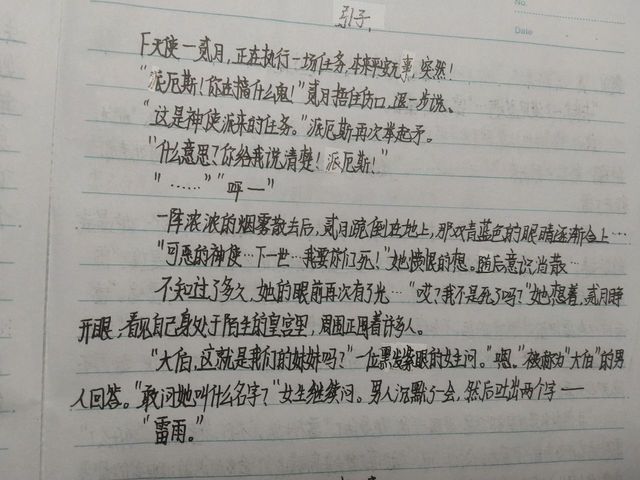 No.
Date
引子,
F天使一贰月,正在执行一场任务,本来平安无事,突然!
“派厄斯!你在搞什么鬼!”贰月捂住伤口,退一步说、
“这是神使派来的任务。”派厄斯再次举起矛。
“什么意思?你给我说清楚!派厄斯!”
“……”“呯一”
一阵浓浓的烟雾散去后,贰月跪倒在地上,那双青蓝色的眼睛逐渐合上…
“可恶的神使…下一世…我要你们死!”她愤恨的想。随后意识消散…
不知过了多久,她的眼前再次有了光…“哎?我不是死了吗?”她想着,贰月睁
开眼,看见自己身处于陌生的皇宫里,周围正围着许多人。
“大伯,这就是我们的妹妹吗?”一位黑发紫眼的女生问。”嗯。”被称为“大伯”的男
人回答。“敢问她叫什么名字?”女生继续问。男人沉默了一会,然后吐出两个字——
“雷雨。”